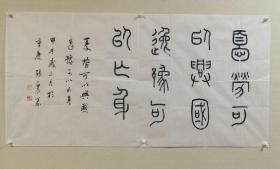 憂勞可
以興國
逸豫可
以亡身
憂勞可以興國
逸豫可以亡身
甲午歲
重慶